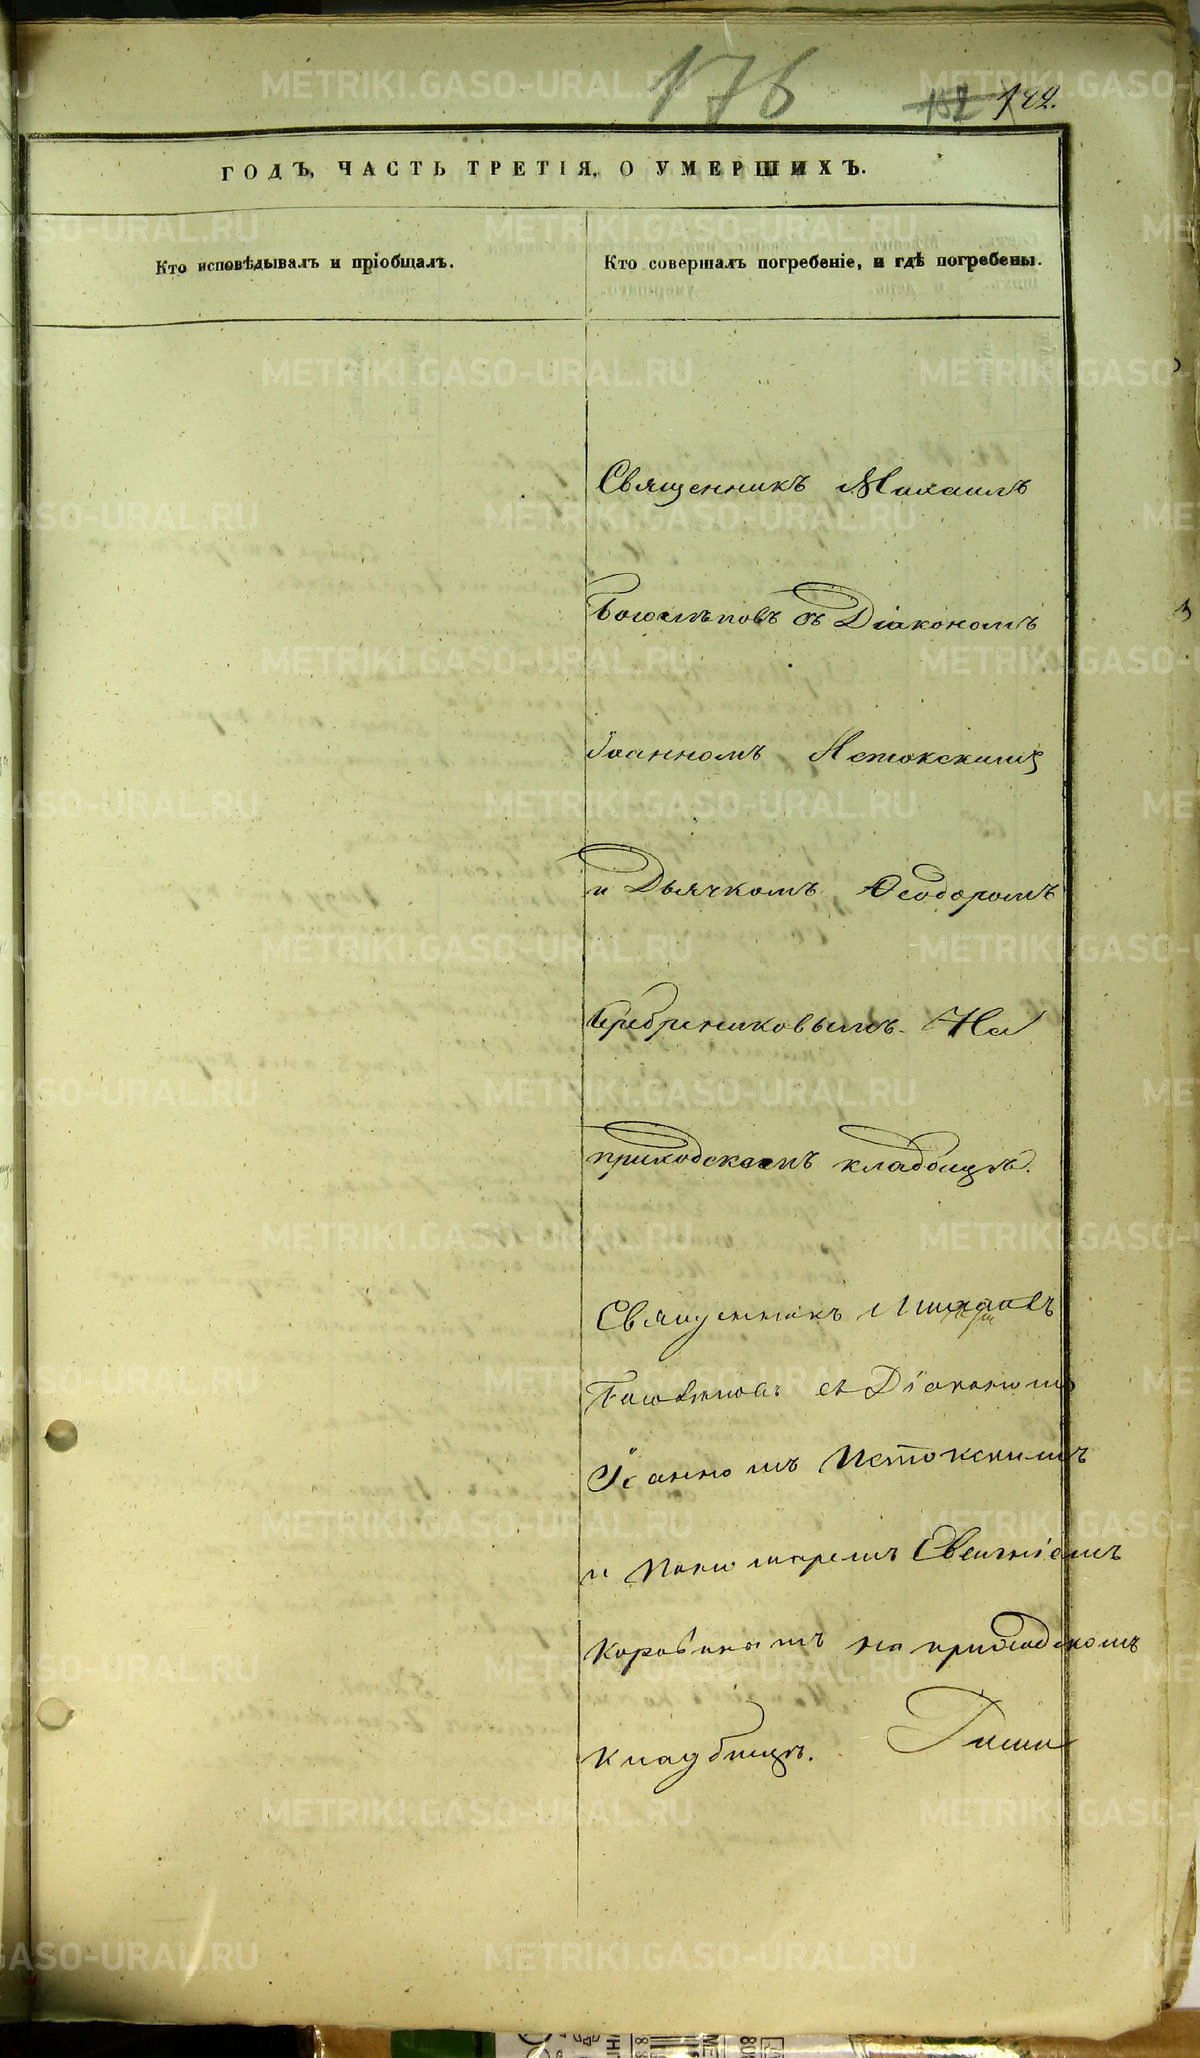 176
152 142.
ГОДЪ, ЧАСТЬ ТРЕТІЯ, О УМЕРШИХЪ.
Кто исповѣдывалъ и пріобщалъ.
Кто совершалъ погребеніе, и гдѣ погребены.
Священникъ Михаилъ
Боголѣповъ съ Діакономъ
Іоанномъ Истокскимъ
и Дьячкомъ Ѳеодоромъ
Серебрениковымъ. На
приходскомъ кладбищѣ.
Священникъ Михаилъ
Боголѣповъ съ Діакономъ
Іоанномъ Истокскимъ
и Пономаремъ Евгеніемъ
Коровинымъ на приходскомъ
кладбищѣ.
METRIKI.GASO-URAL.RU